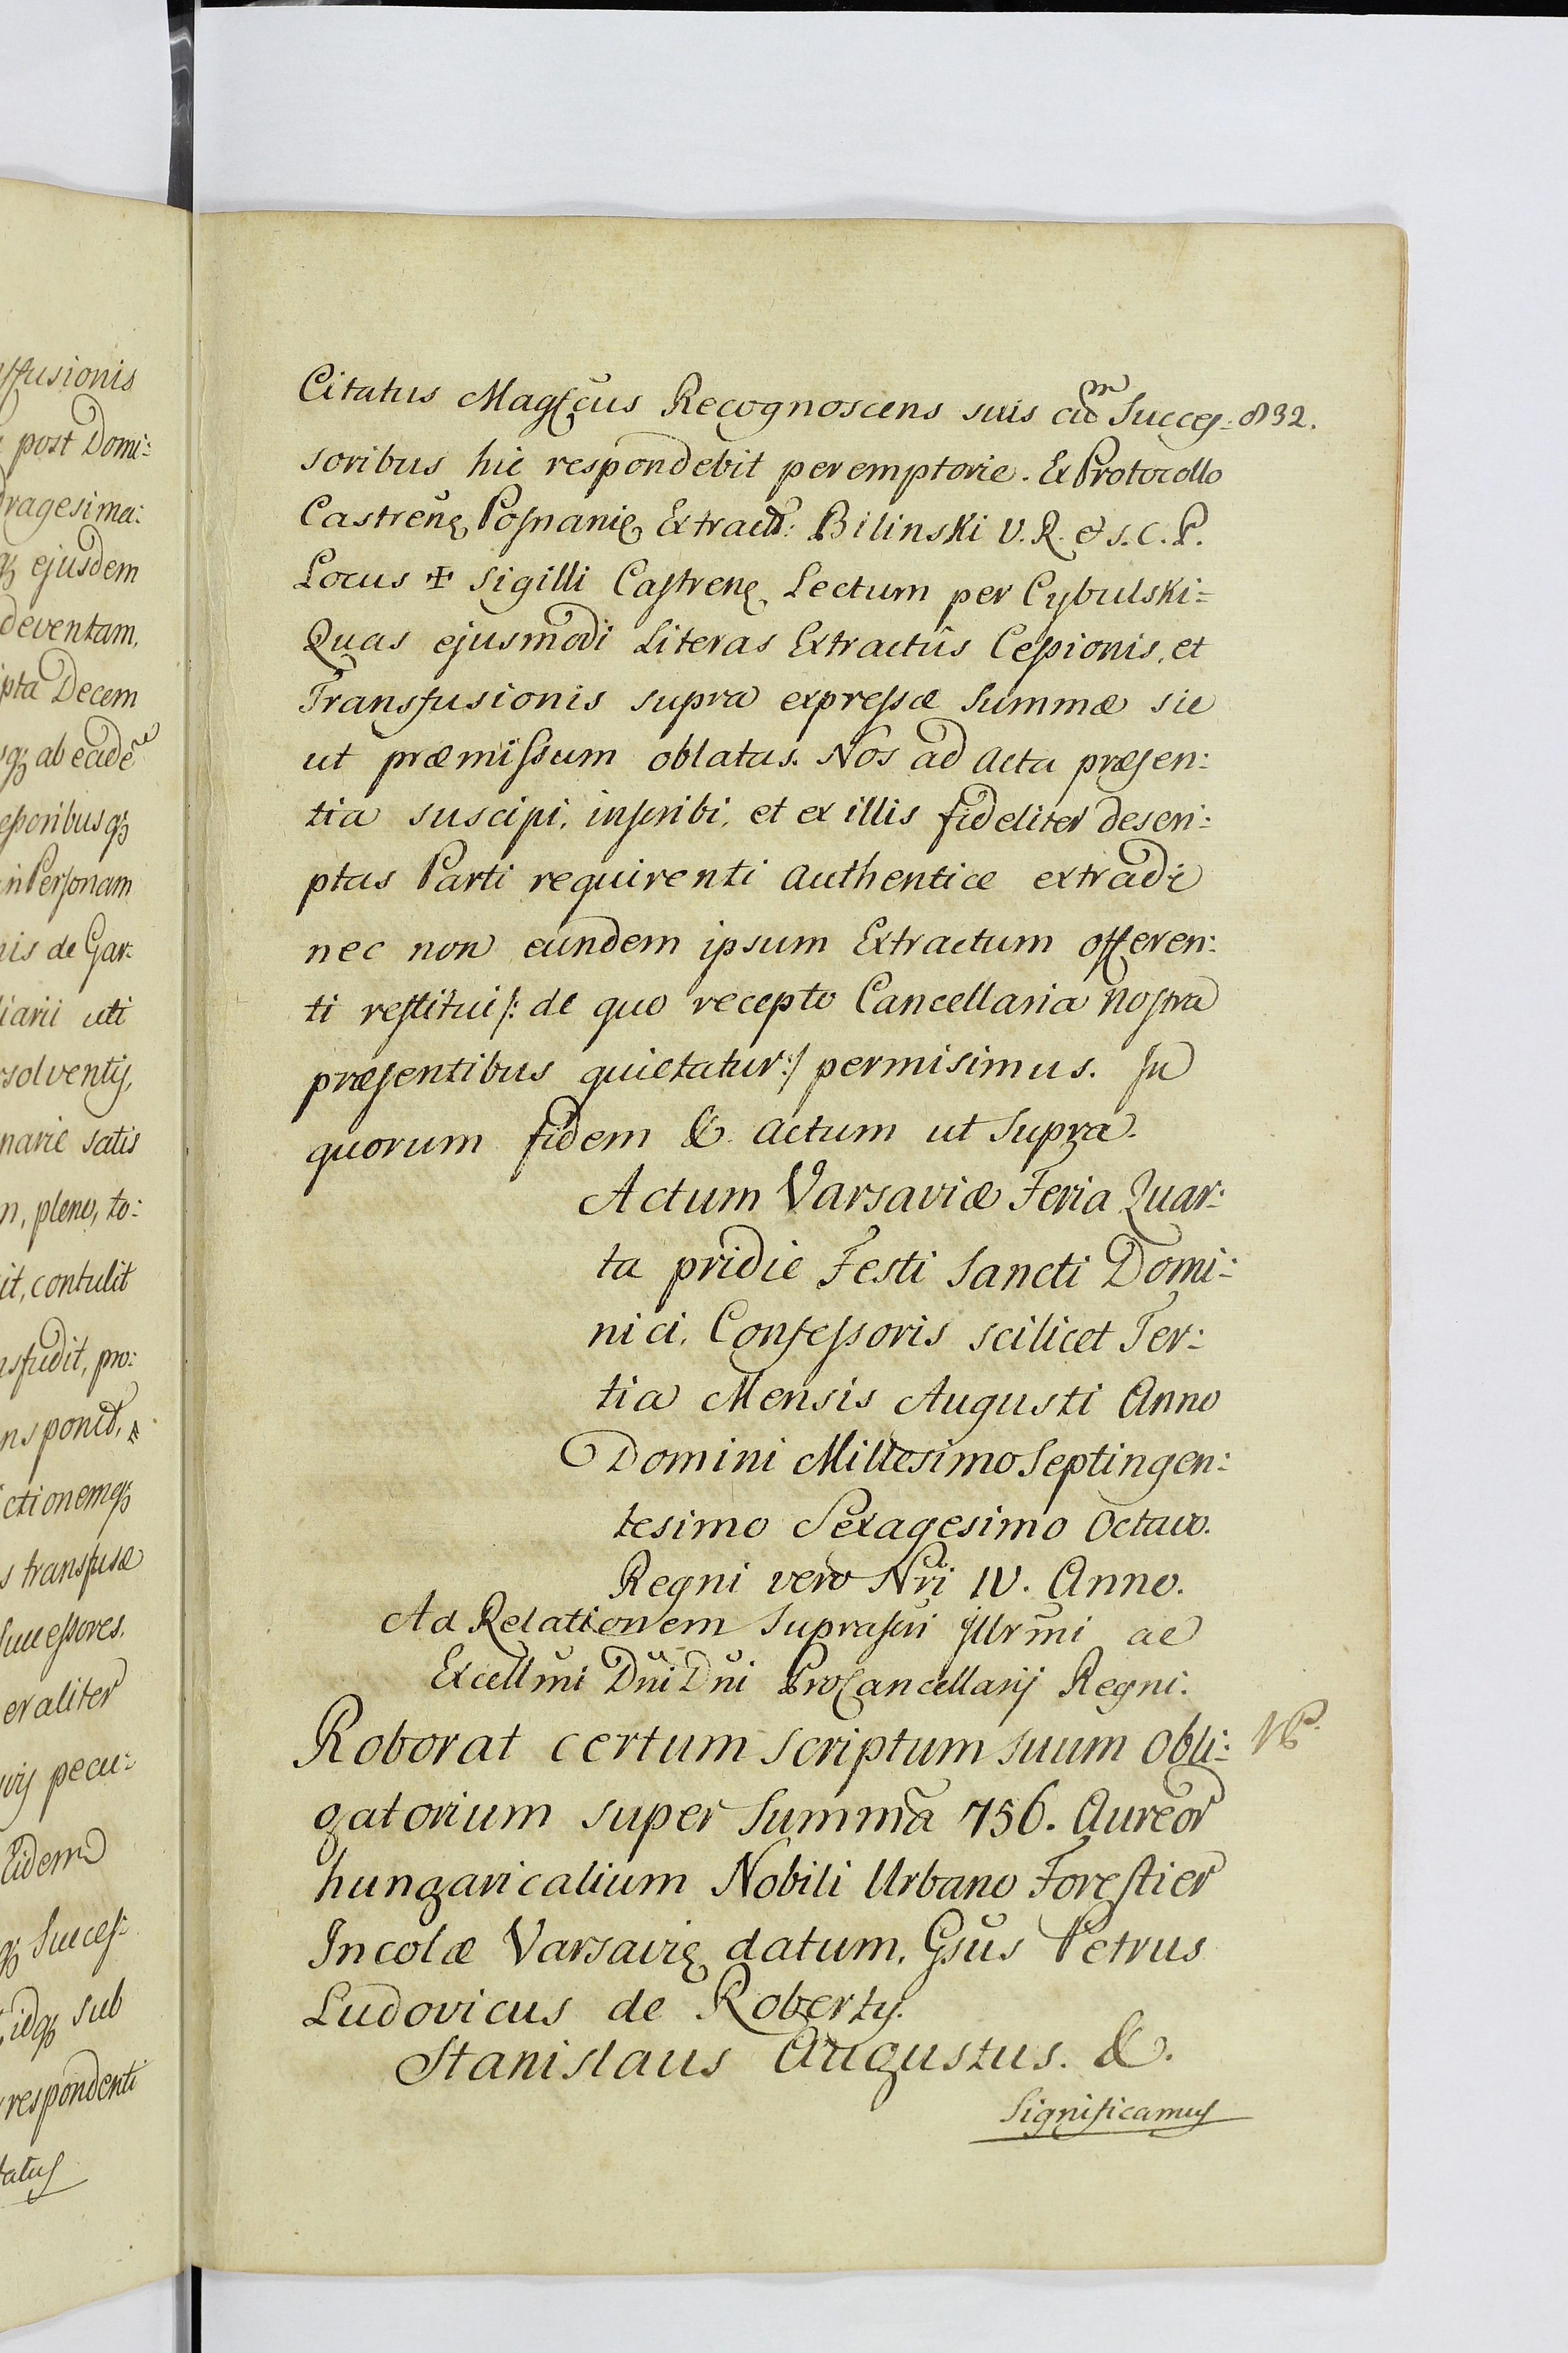 ffusionis
post Domi:
dragesima:
qȝ ejusdem
deventam,
ipta Decem
qȝ ab eadē
essoribusqȝ
in Personam
nis de Gar:
liarii uti
rsolventij,
narie satis
m, pleno, to:
it, contulit
nsfudit, pro:
nsponit,
ctionemqȝ
s transfusæ
Successores,
eraliter
vij pecu:
Eidem
qȝ Succes:
idqȝ sub
respondenti
tatus
Citatus Magfcus Recognoscens suis cum Succes: 832.
soribus hic respondebit peremptorie. Ex Protocollo
Castreñę Posnanię Extract: Bilinski V. R. et S. C. P.
Locus ✠ Sigilli Castrenę Lectum per Cybulski =
Quas ejusmodi Literas Extractûs Cessionis, et
Transfusionis supra expressæ Summæ sic
ut præmissum oblatas. Nos ad Acta præsen:
tia suscipi, inscribi, et ex illis fideliter descri:
ptas Parti requirenti Authentice extradi
nec non eundem ipsum Extractum offeren:
ti restitui /: de quo recepto Cancellaria Nostra
præsentibus quietatur :/ permisimus. In
quorum fidem &. Actum ut Supra.
Actum Varsaviæ Feria Quar:
ta pridie Festi Sancti Domi:
nici, Confessoris scilicet Ter:
tia Mensis Augusti Anno
Domini Millesimo Septingen:
tesimo Sexagesimo Octavo.
Regni vero Nri IV. Anno.
Ad Relationem Suprascri Illrmi ac
Excellmi Dni Dni ProCancellarij Regni.
Roborat certum Scriptum suum Obli:
gatorium super Summā 756. Aureor
hungaricalium Nobili Urbano Forestier
Incolæ Varsavię datum, Gsus Petrus
Ludovicus de Roberty.
Stanislaus Augustus. &.
Significamus